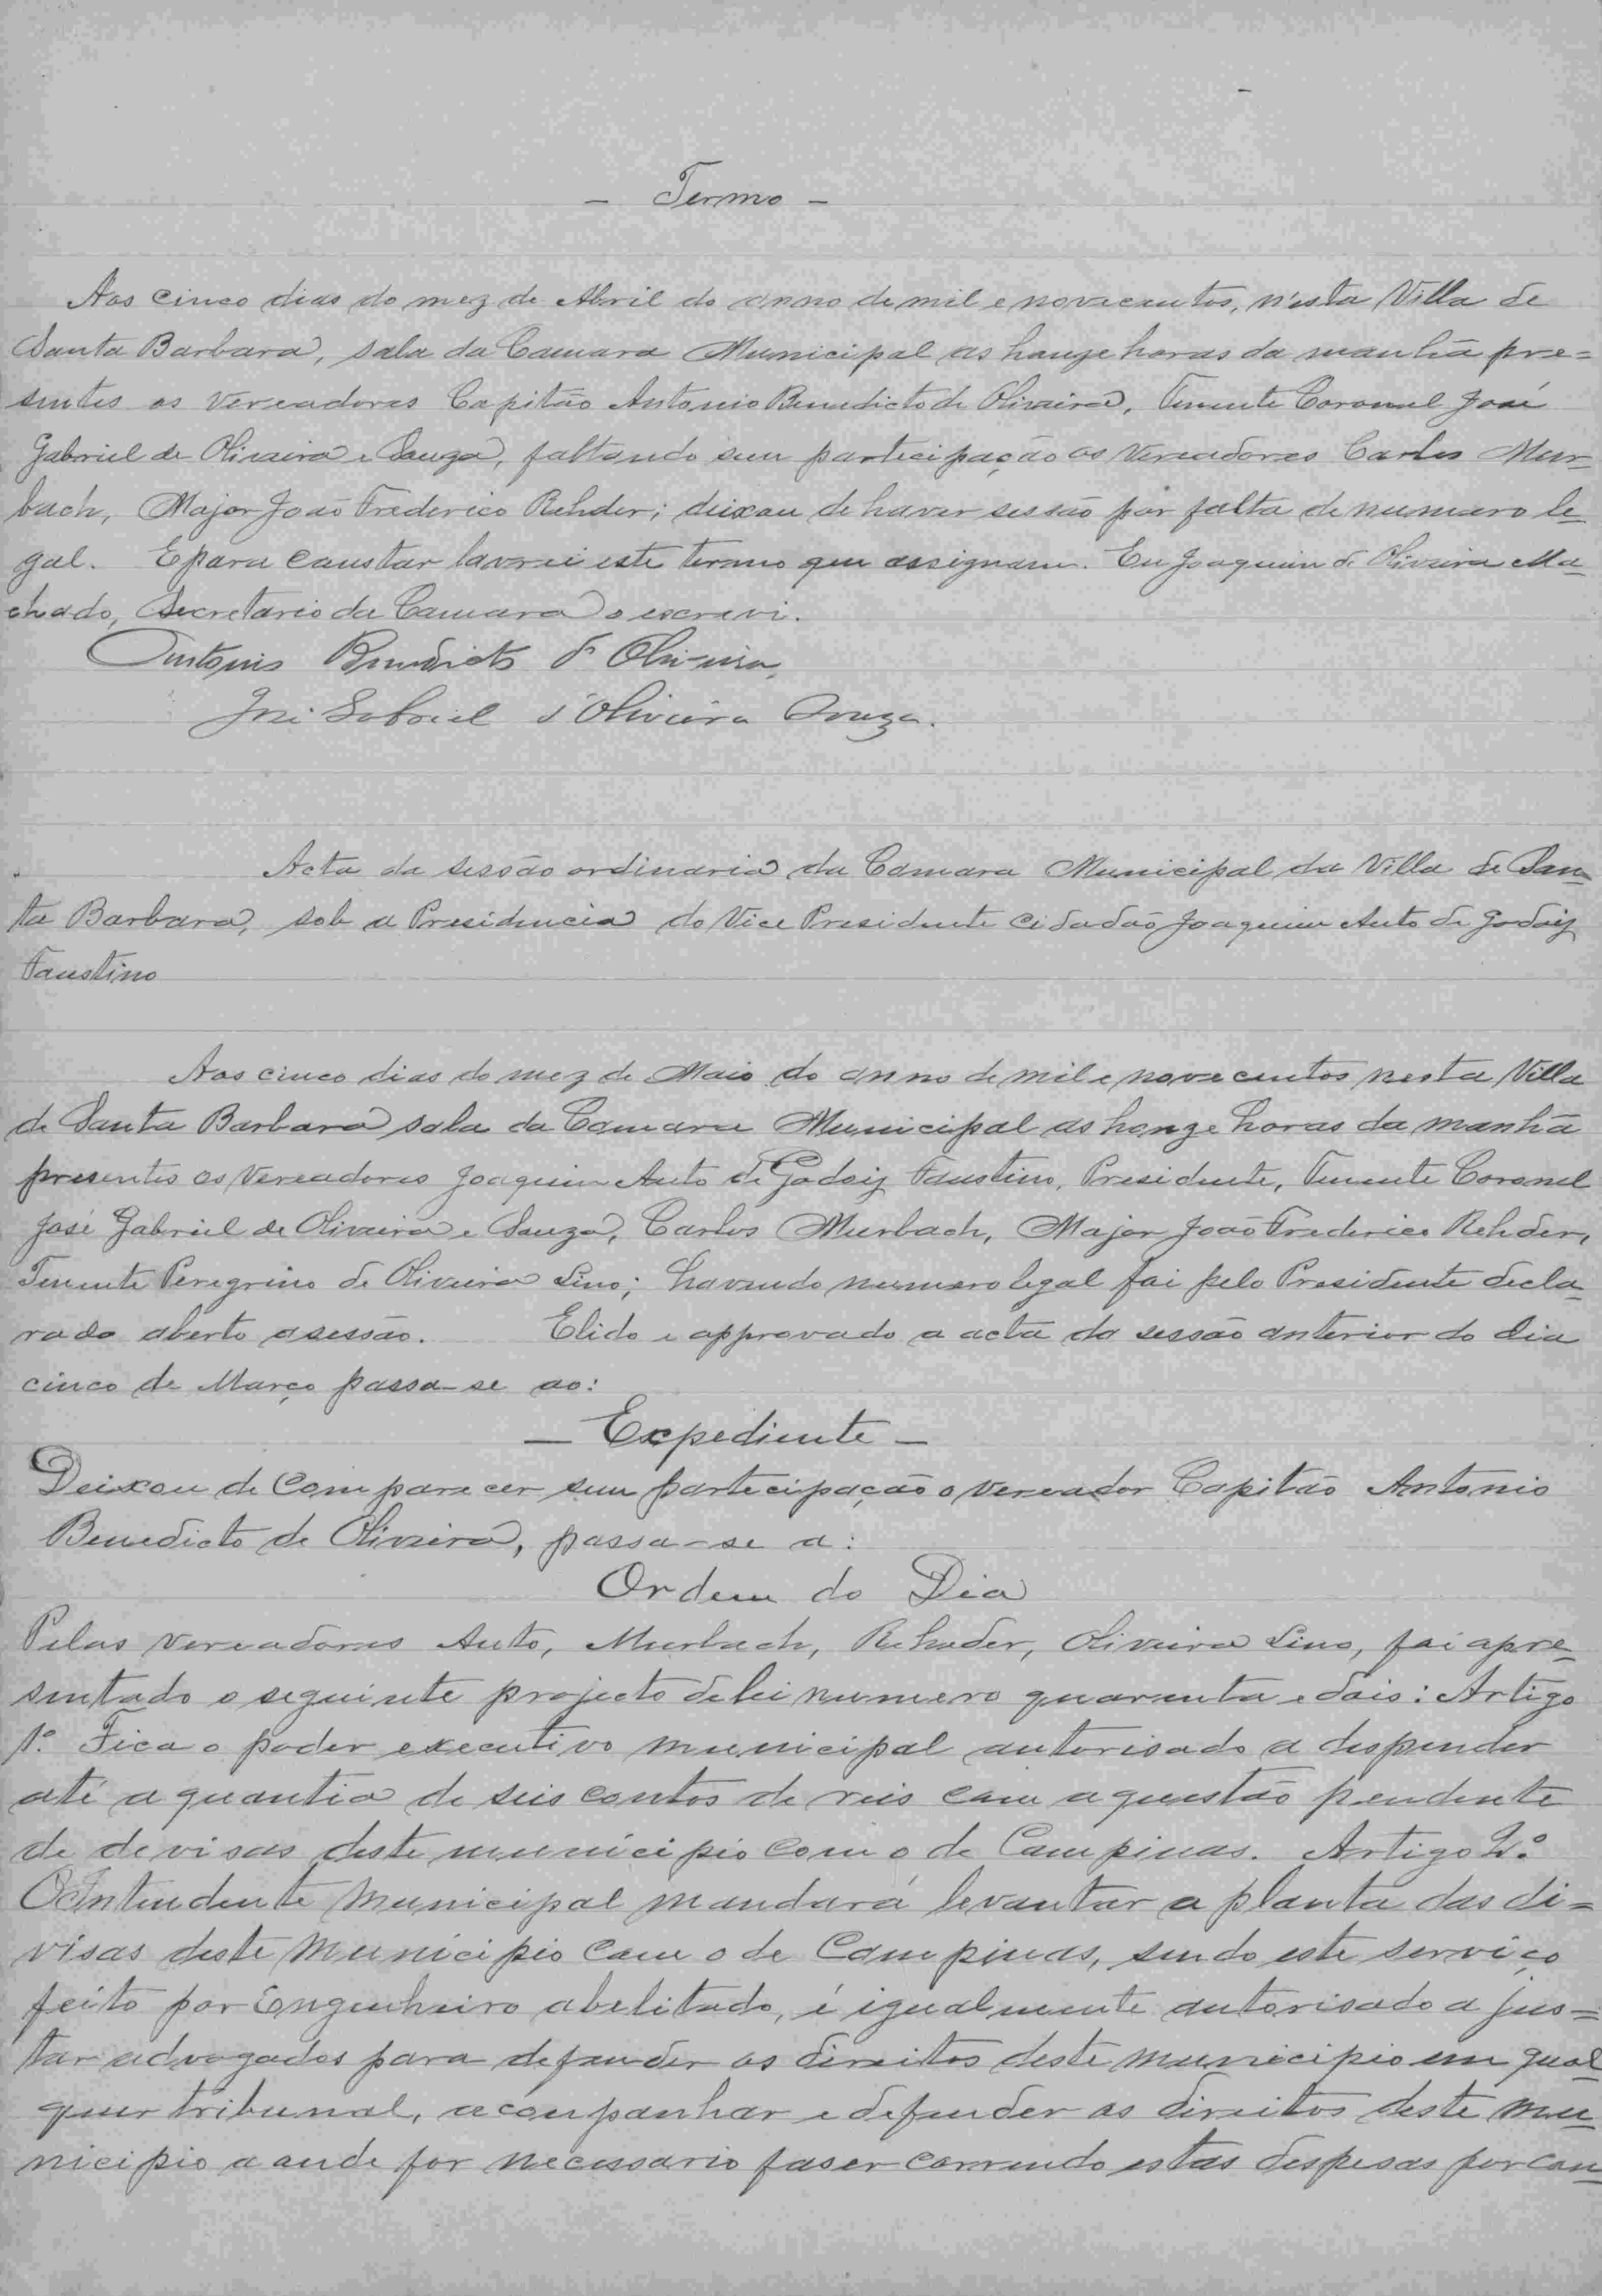 - Termo -
Aos cinco dias do mez de Abril do anno de mil e novecentos, n'esta Villa de
Santa Barbara, sala da Camara Municipal as honze horas da manhã pre=
sentes os Vereadores Capitão Antonio Benedicto de Oliveira, Tenente Coronel José
Gabriel de Oliveira e Souza, faltando sem participação os Vereadores Carlos Mur-
bach, Major João Frederico Rehder; deixou de haver sessão por falta de numero le-
gal. E para constar lavrei este termo que assignam. Eu Joaquim de Oliveira Ma-
chado, Secretario da Camara o escrevi.
Antonio Benedicto d' Oliveira,
José Gabriel d'Oliveira Souza.
Acta da sessão ordinaria da Camara Municipal da Villa de San-
ta Barbara, sob a Presidencia do Vice Presidente Cidadão Joaquim Auto de Godoiz
Faustino
Aos cinco dias do mez de Maio do anno de mil e novecentos nesta Villa
de Santa Barbara sala da Camara Municipal as honze horas da manhã
presentes os Vereadores Joaquim Auto de Godoiz Faustino, Presidente, Tenente Coronel
José Gabriel de Oliveira e Souza, Carlos Murbach, Major João Frederico Rehder,
Tenente Peregrino de Oliveira Lino; havendo numero legal foi pelo Presidente decla-
rado aberto a sessão. E lido e approvado a acta da sessão anterior do dia
cinco de Março passa-se ao:
- Expediente -
Deixou de comparecer sem participação o vereador Capitão Antonio
Benedicto de Oliveira, passa-se a:
Ordem do Dia
Pelos vereadores Auto, Murbach, Rehder, Oliveira Lino, foi apre-
sentado o seguinte projecto de lei numero quarenta e dois: Artigo
1º. Fica o poder executivo municipal autorisado a despender
até a quantia de seis contos de reis com a questão pendente
de devisas deste municipio com o de Campinas. Artigo 2º.
O Intendente Municipal mandará levantar a planta das di=
visas deste Municipio com o de Campinas, sendo este serviço
feito por Engenheiro abelitado, é igualmente autorisado a jus=
tar advogados para defender os direitos deste municipio em qual-
quer tribunal, acompanhar e defender os direitos deste mu-
nicipio a onde for necessario faser correndo estas despesas por con-